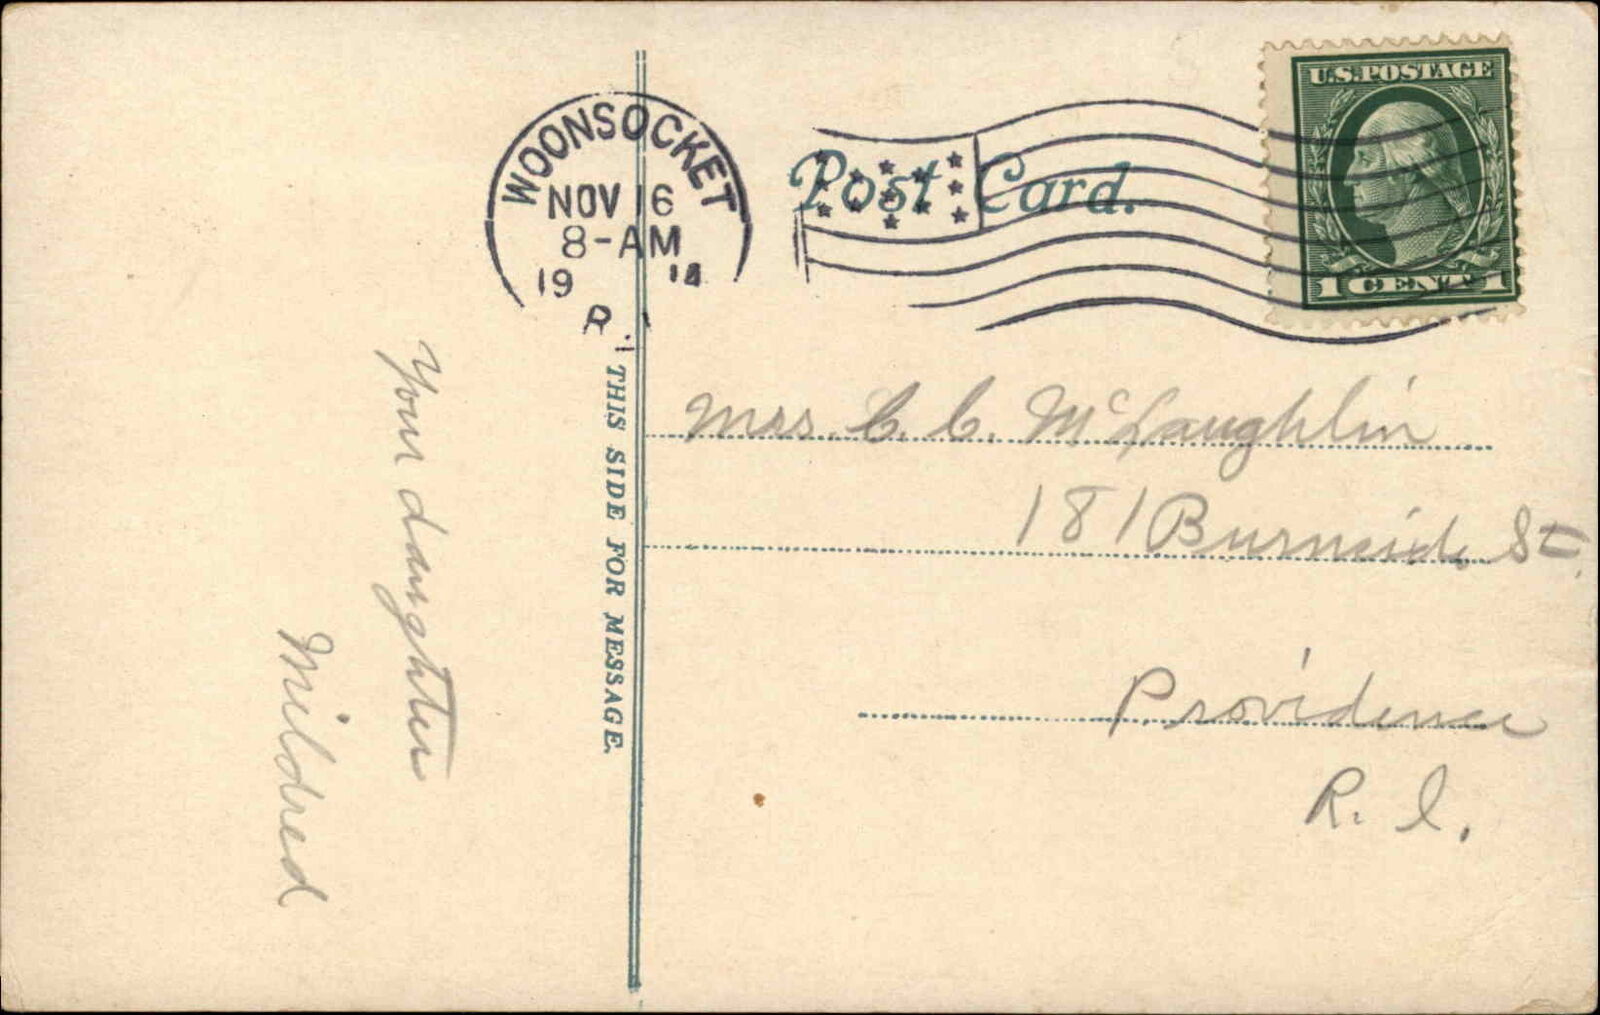 WOONSOCKET
NOV 16
8-AM
19 14
R.I.
Post Card.
U.S. POSTAGE
1 CENT 1
THIS SIDE FOR MESSAGE.
Your daughter
Mildred
Mrs. C. C. McLaughlin
181 Burnside St.
Providence
R. I.